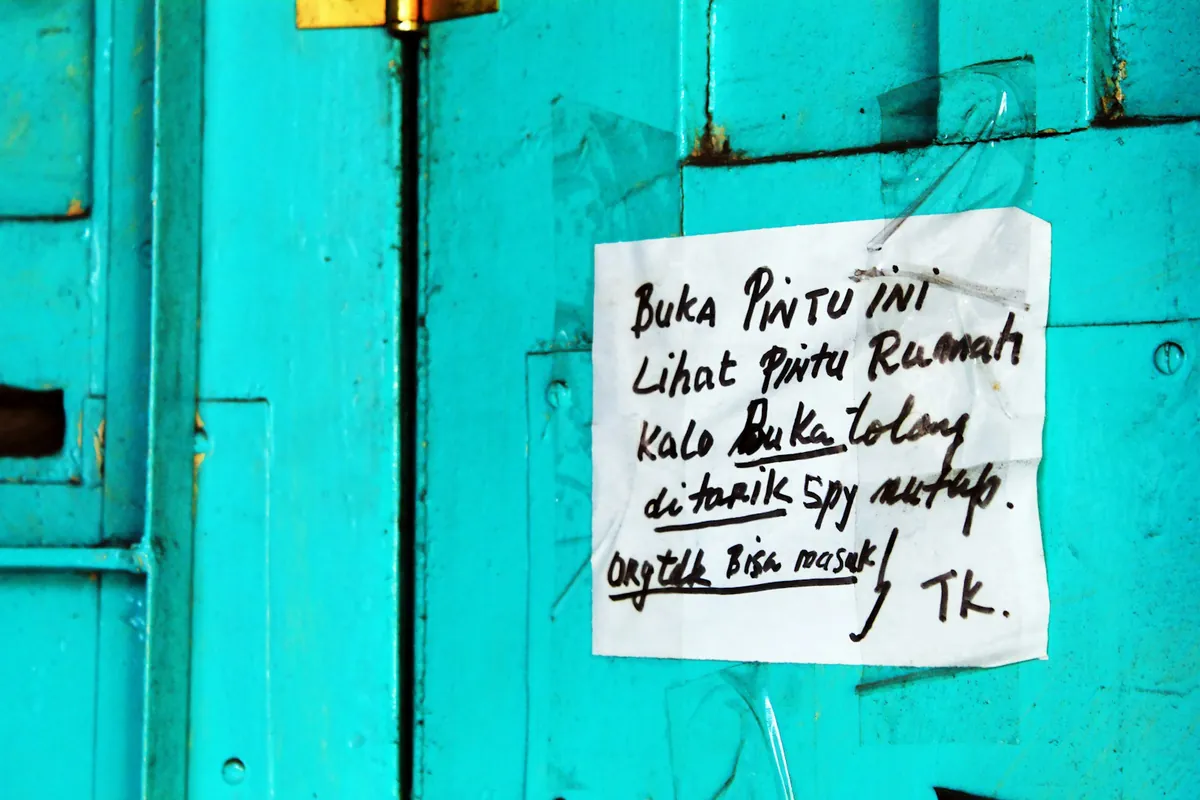 BUKA PINTU iNi
Lihat Pintu Rumah
Kalo Buka tolong
ditarik spy nutup.
orgtdk Bisa masuk
TK.